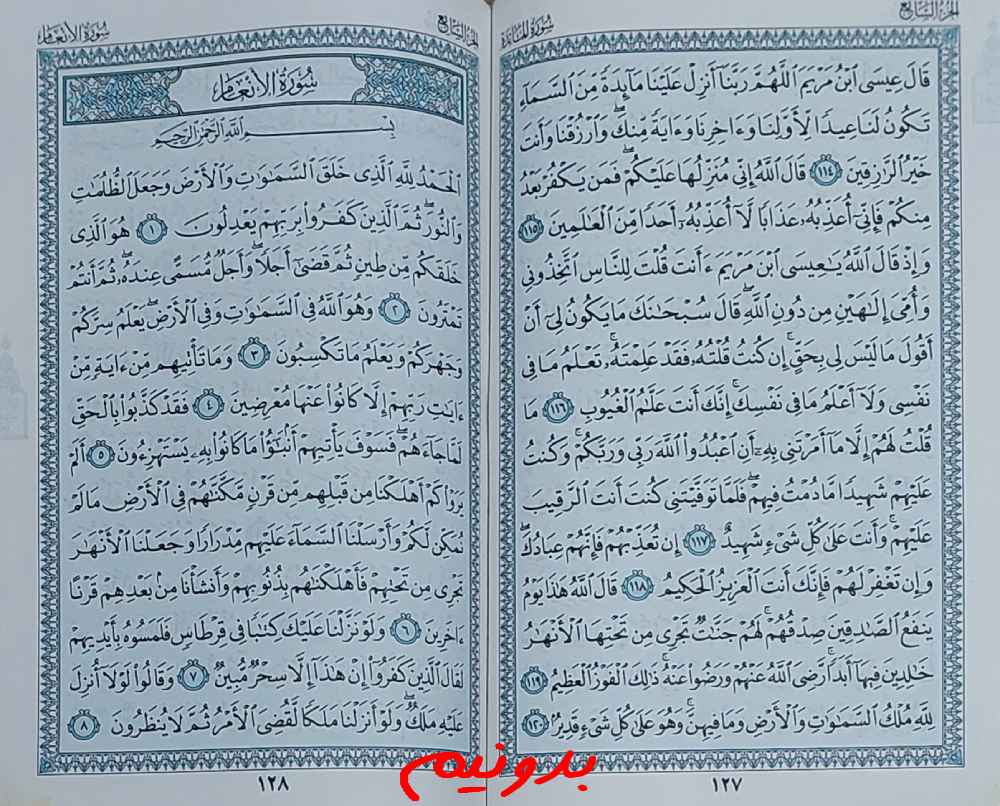 الجزء السابع
سورة المائدة
قَالَ عِيسَى ٱبْنُ مَرْيَمَ ٱللَّهُمَّ رَبَّنَآ أَنزِلْ عَلَيْنَا مَآئِدَةً مِّنَ ٱلسَّمَآءِ
تَكُونُ لَنَا عِيدًا لِّأَوَّلِنَا وَءَاخِرِنَا وَءَايَةً مِّنكَ ۖ وَٱرْزُقْنَا وَأَنتَ
خَيْرُ ٱلرَّٰزِقِينَ ١١٤ قَالَ ٱللَّهُ إِنِّى مُنَزِّلُهَا عَلَيْكُمْ ۖ فَمَن يَكْفُرْ بَعْدُ
مِنكُمْ فَإِنِّىٓ أُعَذِّبُهُۥ عَذَابًا لَّآ أُعَذِّبُهُۥٓ أَحَدًا مِّنَ ٱلْعَٰلَمِينَ ١١٥
وَإِذْ قَالَ ٱللَّهُ يَٰعِيسَى ٱبْنَ مَرْيَمَ ءَأَنتَ قُلْتَ لِلنَّاسِ ٱتَّخِذُونِى
وَأُمِّىَ إِلَٰهَيْنِ مِن دُونِ ٱللَّهِ ۖ قَالَ سُبْحَٰنَكَ مَا يَكُونُ لِىٓ أَنْ
أَقُولَ مَا لَيْسَ لِى بِحَقٍّ ۚ إِن كُنتُ قُلْتُهُۥ فَقَدْ عَلِمْتَهُۥ ۚ تَعْلَمُ مَا فِى
نَفْسِى وَلَآ أَعْلَمُ مَا فِى نَفْسِكَ ۚ إِنَّكَ أَنتَ عَلَّٰمُ ٱلْغُيُوبِ ١١٦ مَا
قُلْتُ لَهُمْ إِلَّا مَآ أَمَرْتَنِى بِهِۦٓ أَنِ ٱعْبُدُوا۟ ٱللَّهَ رَبِّى وَرَبَّكُمْ ۚ وَكُنتُ
عَلَيْهِمْ شَهِيدًا مَّا دُمْتُ فِيهِمْ ۖ فَلَمَّا تَوَفَّيْتَنِى كُنتَ أَنتَ ٱلرَّقِيبَ
عَلَيْهِمْ ۚ وَأَنتَ عَلَىٰ كُلِّ شَىْءٍ شَهِيدٌ ١١٧ إِن تُعَذِّبْهُمْ فَإِنَّهُمْ عِبَادُكَ ۖ
وَإِن تَغْفِرْ لَهُمْ فَإِنَّكَ أَنتَ ٱلْعَزِيزُ ٱلْحَكِيمُ ١١٨ قَالَ ٱللَّهُ هَٰذَا يَوْمُ
يَنفَعُ ٱلصَّٰدِقِينَ صِدْقُهُمْ ۚ لَهُمْ جَنَّٰتٌ تَجْرِى مِن تَحْتِهَا ٱلْأَنْهَٰرُ
خَٰلِدِينَ فِيهَآ أَبَدًا ۚ رَّضِىَ ٱللَّهُ عَنْهُمْ وَرَضُوا۟ عَنْهُ ۚ ذَٰلِكَ ٱلْفَوْزُ ٱلْعَظِيمُ ١١٩
لِلَّهِ مُلْكُ ٱلسَّمَٰوَٰتِ وَٱلْأَرْضِ وَمَا فِيهِنَّ ۚ وَهُوَ عَلَىٰ كُلِّ شَىْءٍ قَدِيرٌۢ ١٢٠
١٢٧
الجزء السابع
سورة الأنعام
سُورَةُ الأَنْعَامِ
بِسْمِ ٱللَّهِ ٱلرَّحْمَٰنِ ٱلرَّحِيمِ
ٱلْحَمْدُ لِلَّهِ ٱلَّذِى خَلَقَ ٱلسَّمَٰوَٰتِ وَٱلْأَرْضَ وَجَعَلَ ٱلظُّلُمَٰتِ
وَٱلنُّورَ ۖ ثُمَّ ٱلَّذِينَ كَفَرُوا۟ بِرَبِّهِمْ يَعْدِلُونَ ١ هُوَ ٱلَّذِى
خَلَقَكُم مِّن طِينٍ ثُمَّ قَضَىٰٓ أَجَلًا ۖ وَأَجَلٌ مُّسَمًّى عِندَهُۥ ۖ ثُمَّ أَنتُمْ
تَمْتَرُونَ ٢ وَهُوَ ٱللَّهُ فِى ٱلسَّمَٰوَٰتِ وَفِى ٱلْأَرْضِ ۖ يَعْلَمُ سِرَّكُمْ
وَجَهْرَكُمْ وَيَعْلَمُ مَا تَكْسِبُونَ ٣ وَمَا تَأْتِيهِم مِّنْ ءَايَةٍ مِّنْ
ءَايَٰتِ رَبِّهِمْ إِلَّا كَانُوا۟ عَنْهَا مُعْرِضِينَ ٤ فَقَدْ كَذَّبُوا۟ بِٱلْحَقِّ
لَمَّا جَآءَهُمْ ۖ فَسَوْفَ يَأْتِيهِمْ أَنۢبَٰٓؤُا۟ مَا كَانُوا۟ بِهِۦ يَسْتَهْزِءُونَ ٥ أَلَمْ
يَرَوْا۟ كَمْ أَهْلَكْنَا مِن قَبْلِهِم مِّن قَرْنٍ مَّكَّنَّٰهُمْ فِى ٱلْأَرْضِ مَا لَمْ
نُمَكِّن لَّكُمْ وَأَرْسَلْنَا ٱلسَّمَآءَ عَلَيْهِم مِّدْرَارًا وَجَعَلْنَا ٱلْأَنْهَٰرَ
تَجْرِى مِن تَحْتِهِمْ فَأَهْلَكْنَٰهُم بِذُنُوبِهِمْ وَأَنشَأْنَا مِنۢ بَعْدِهِمْ قَرْنًا
ءَاخَرِينَ ٦ وَلَوْ نَزَّلْنَا عَلَيْكَ كِتَٰبًا فِى قِرْطَاسٍ فَلَمَسُوهُ بِأَيْدِيهِمْ
لَقَالَ ٱلَّذِينَ كَفَرُوٓا۟ إِنْ هَٰذَآ إِلَّا سِحْرٌ مُّبِينٌ ٧ وَقَالُوا۟ لَوْلَآ أُنزِلَ
عَلَيْهِ مَلَكٌ ۖ وَلَوْ أَنزَلْنَا مَلَكًا لَّقُضِىَ ٱلْأَمْرُ ثُمَّ لَا يُنظَرُونَ ٨
١٢٨
بدونیم